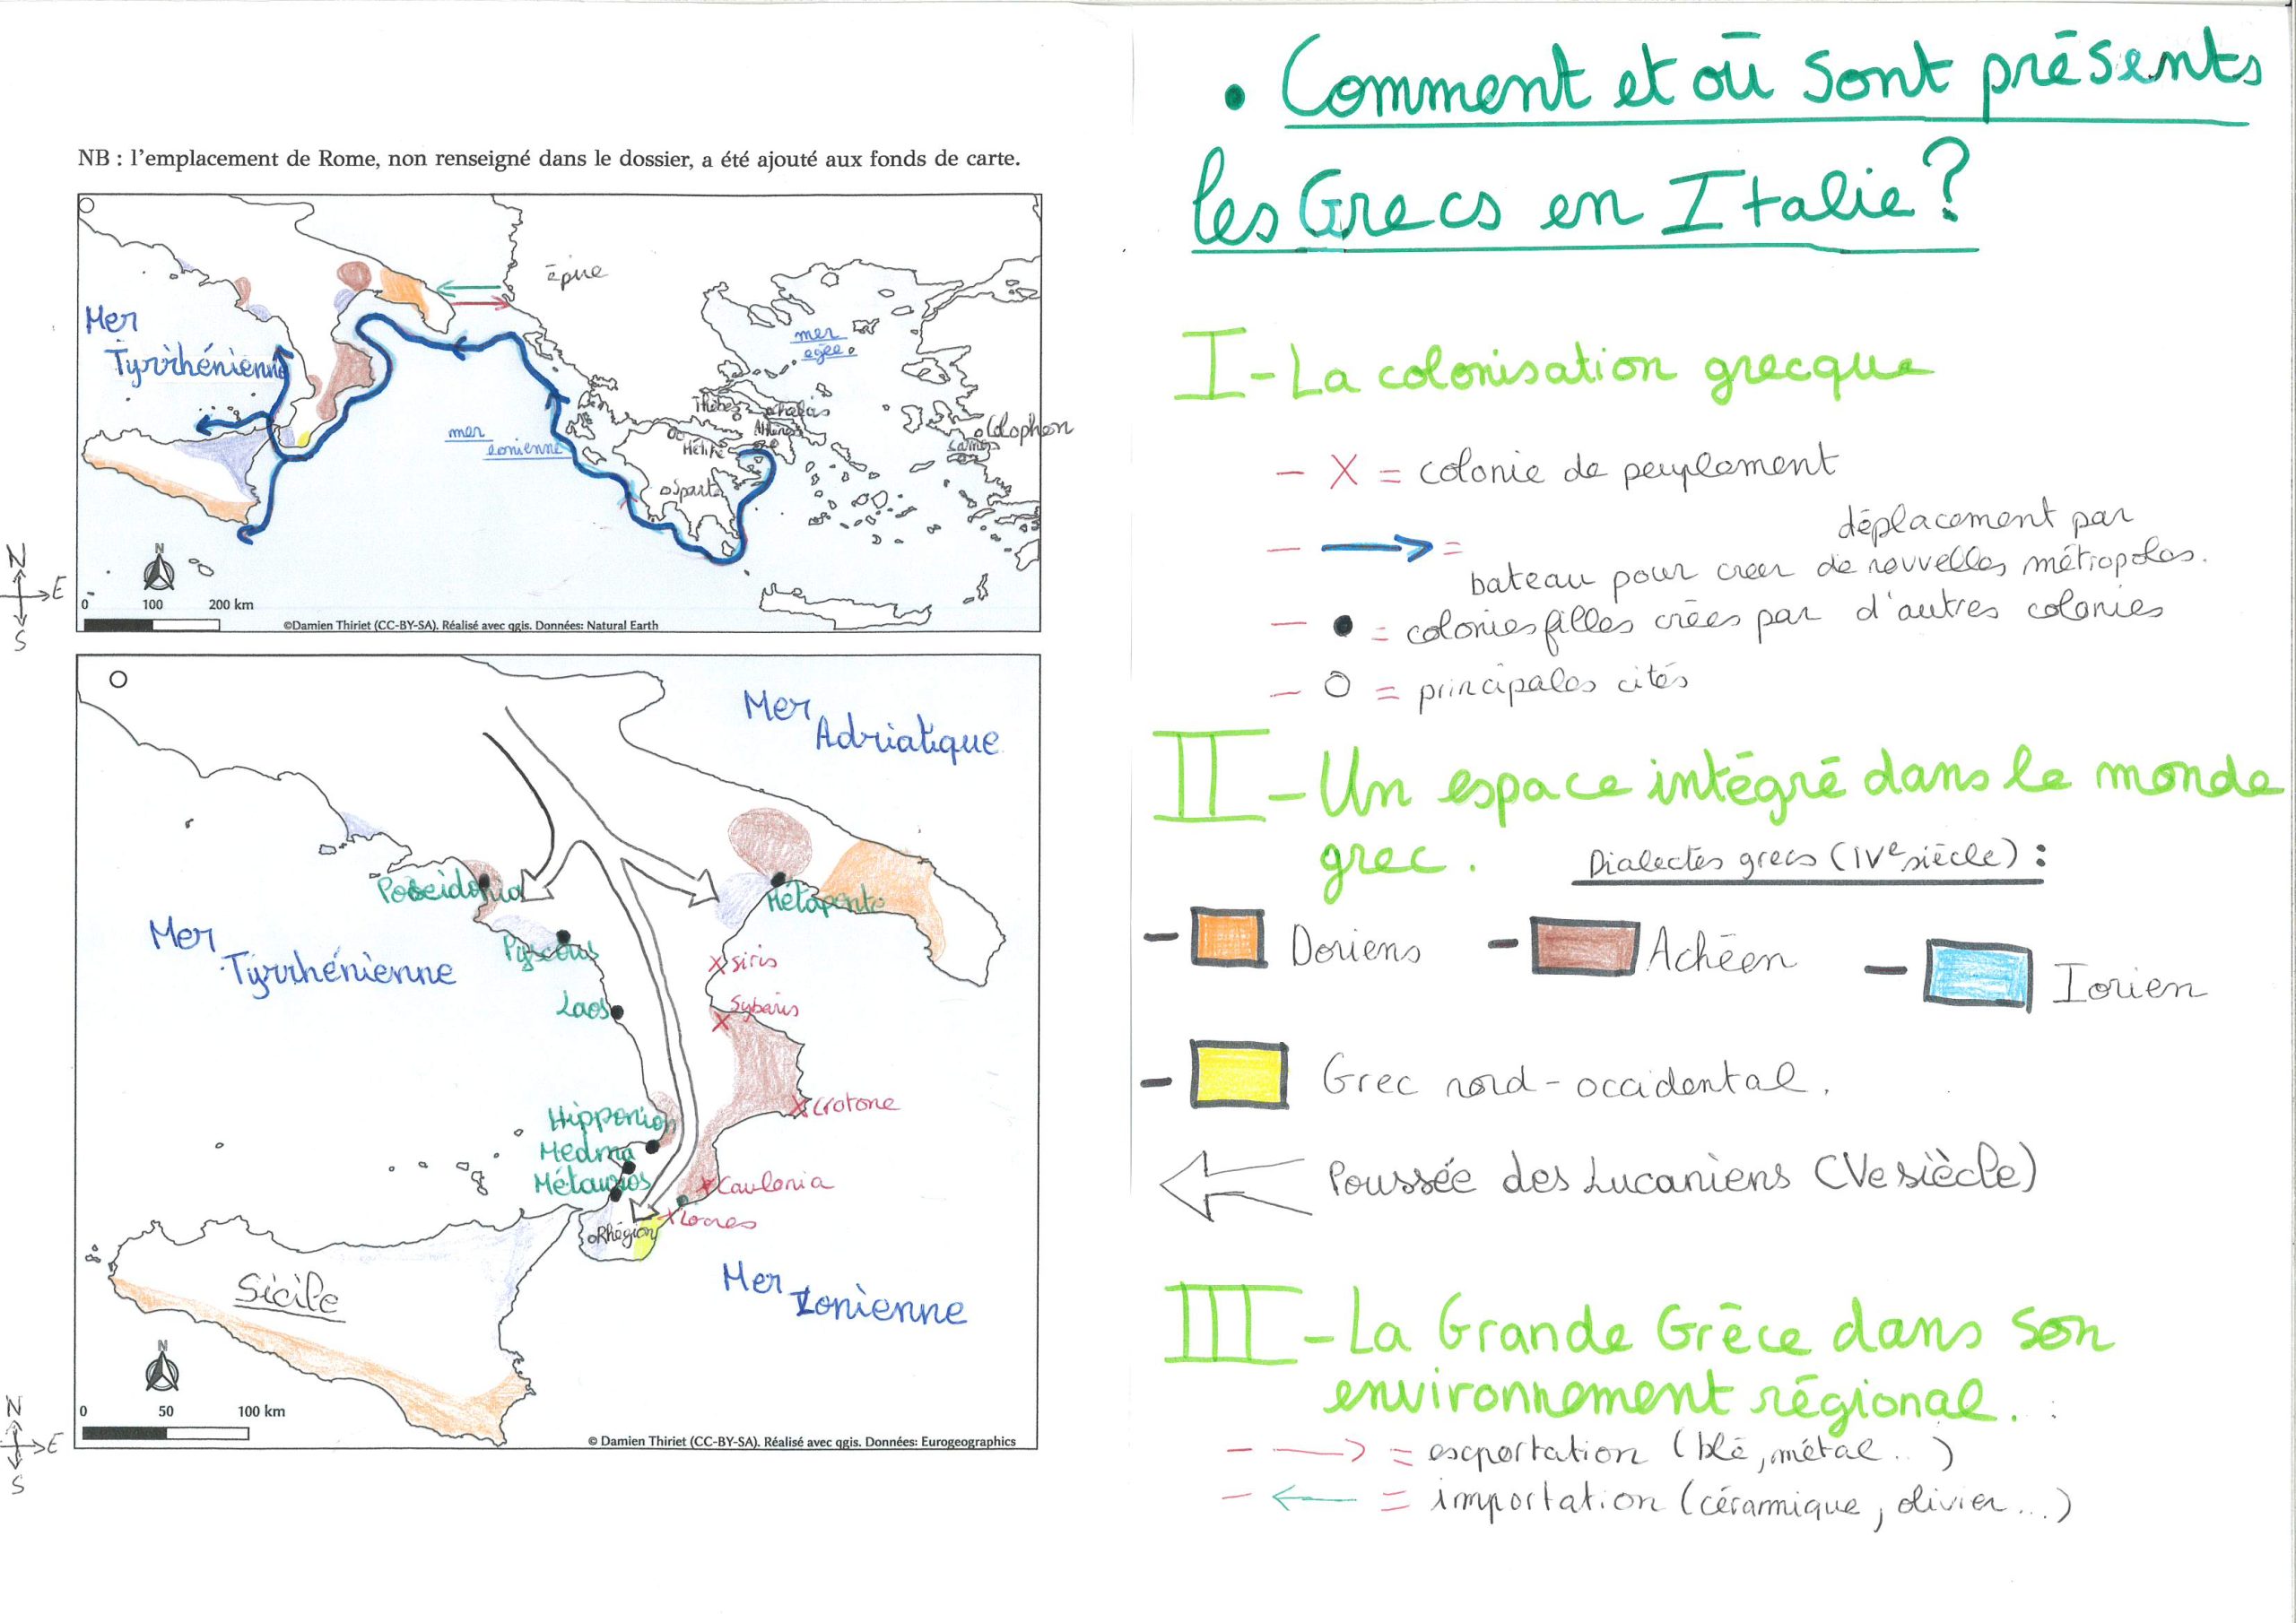 NB : l'emplacement de Rome, non renseigné dans le dossier, a été ajouté aux fonds de carte.
Mer
Tyrrhénienne
épire
mer
egée
mer
ionienne
Thèbes
Chalcis
Athènes
Hélikè
Sparte
Colophon
Samos
N
E
S
N
0 100 200 km
©Damien Thiriet (CC-BY-SA). Réalisé avec qgis. Données: Natural Earth
Mer
Adriatique
Poseidonia
Métaponte
Mer
Tyrrhénienne
Pyxous
Siris
Laos
Sybaris
Hipponion
Crotone
Medma
Métauros
Caulonia
Locres
Rhégion
Sicile
Mer
Ionienne
N
0 50 100 km
N
E
S
© Damien Thiriet (CC-BY-SA). Réalisé avec qgis. Données: Eurogeographics
• Comment et où sont présents
les Grecs en Italie ?
I - La colonisation grecque
- X = colonie de peuplement
- → = déplacement par
bateau pour creer de nouvelles métropoles.
- ● = colonies filles crées par d'autres colonies
- O = principales cités
II - Un espace intégré dans le monde
grec.
Dialectes grecs (IVe siècle) :
- Doriens - Achéen - Ionien
- Grec nord-occidental.
Poussée des Lucaniens (Ve siècle)
III - La Grande Grèce dans son
environnement régional.
- → = exportation (blé, métal...)
- ← = importation (céramique, olivier...)